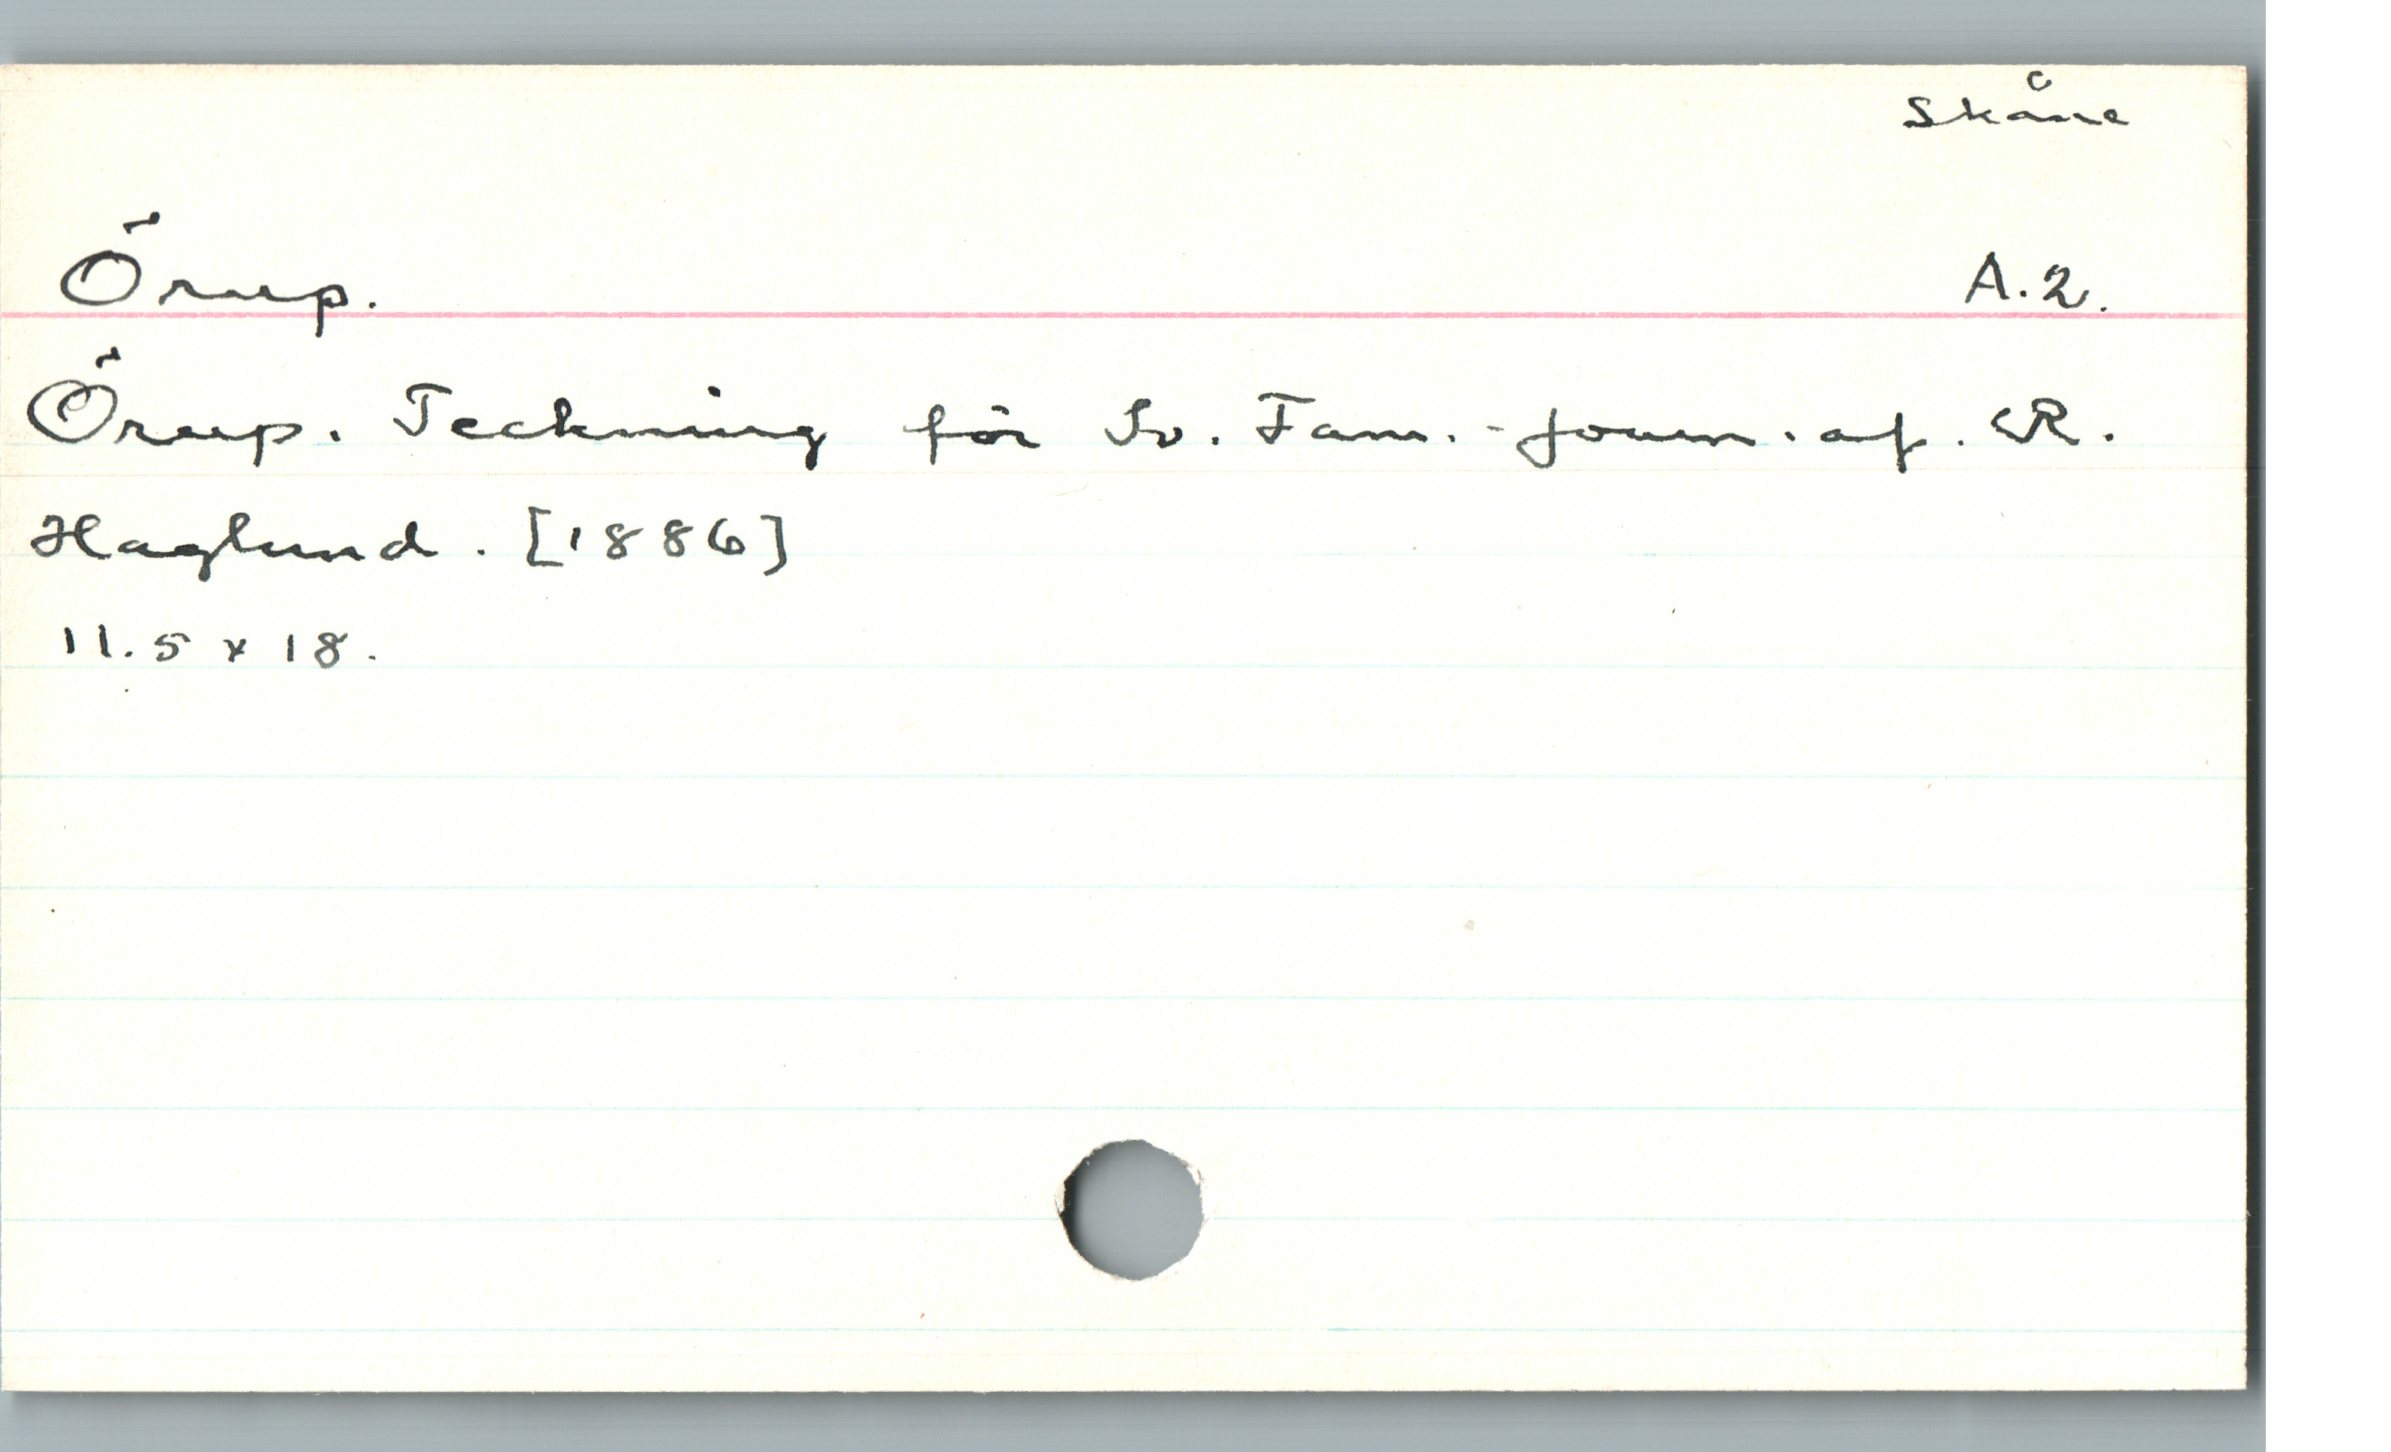 Skåne
Örup. A.2.
Örup. Teckning för Sv. Fam.-Journ. af. R.
Haglund. [1886]
11.5 x 18.